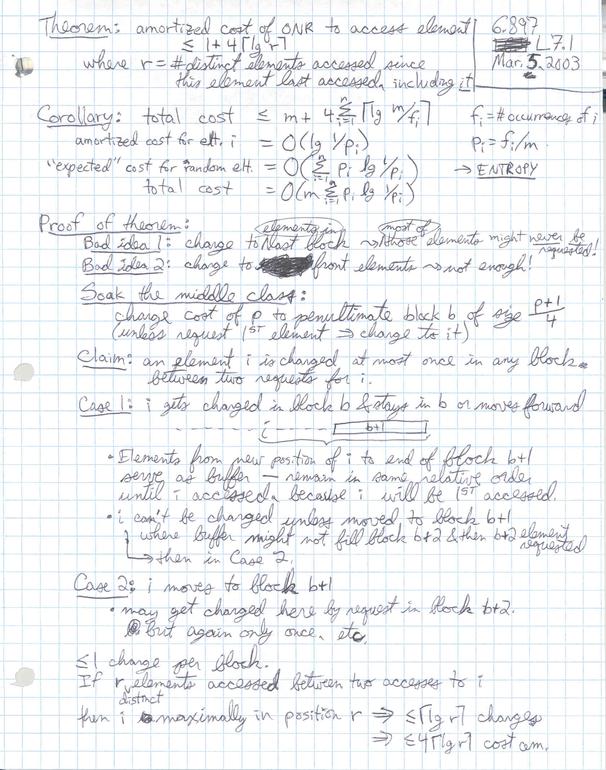 Theorem: amortized cost of ONR to access element
≤ 1 + 4⌈lg r⌉
where r = # distinct elements accessed since
this element last accessed, including it
6.897
L7.1
Mar. 5, 2003
Corollary: total cost ≤ m + 4 Σ_{i=1}^{n} ⌈lg m/f_i⌉ f_i = # occurrences of i
amortized cost for elt. i = O(lg 1/p_i) p_i = f_i/m.
"expected" cost for random elt. = O(Σ_{i=1}^{n} p_i lg 1/p_i) → ENTROPY
total cost = O(m Σ_{i=1}^{n} p_i lg 1/p_i)
Proof of theorem:
Bad idea 1: charge to elements in last block ⇝ most of those elements might never be requested!
Bad idea 2: charge to front elements ⇝ not enough!
Soak the middle class:
charge cost of p to penultimate block b of size (p+1)/4
(unless request 1ST element ⇒ charge to it)
Claim: an element i is charged at most once in any block
between two requests for i.
Case 1: i gets charged in block b & stays in b or moves forward
i b+1
• Elements from new position of i to end of block b+1
serve as buffer — remain in same relative order
until i accessed, because i will be 1ST accessed.
• i can't be charged unless moved to block b+1
where buffer might not fill block b+2 & then b+2 element requested
→ then in Case 2.
Case 2: i moves to block b+1
• may get charged here by request in block b+2.
but again only once, etc.
≤1 charge per block.
If r distinct elements accessed between two accesses to i
then i maximally in position r ⇒ ≤⌈lg r⌉ charges
⇒ ≤4⌈lg r⌉ cost am.